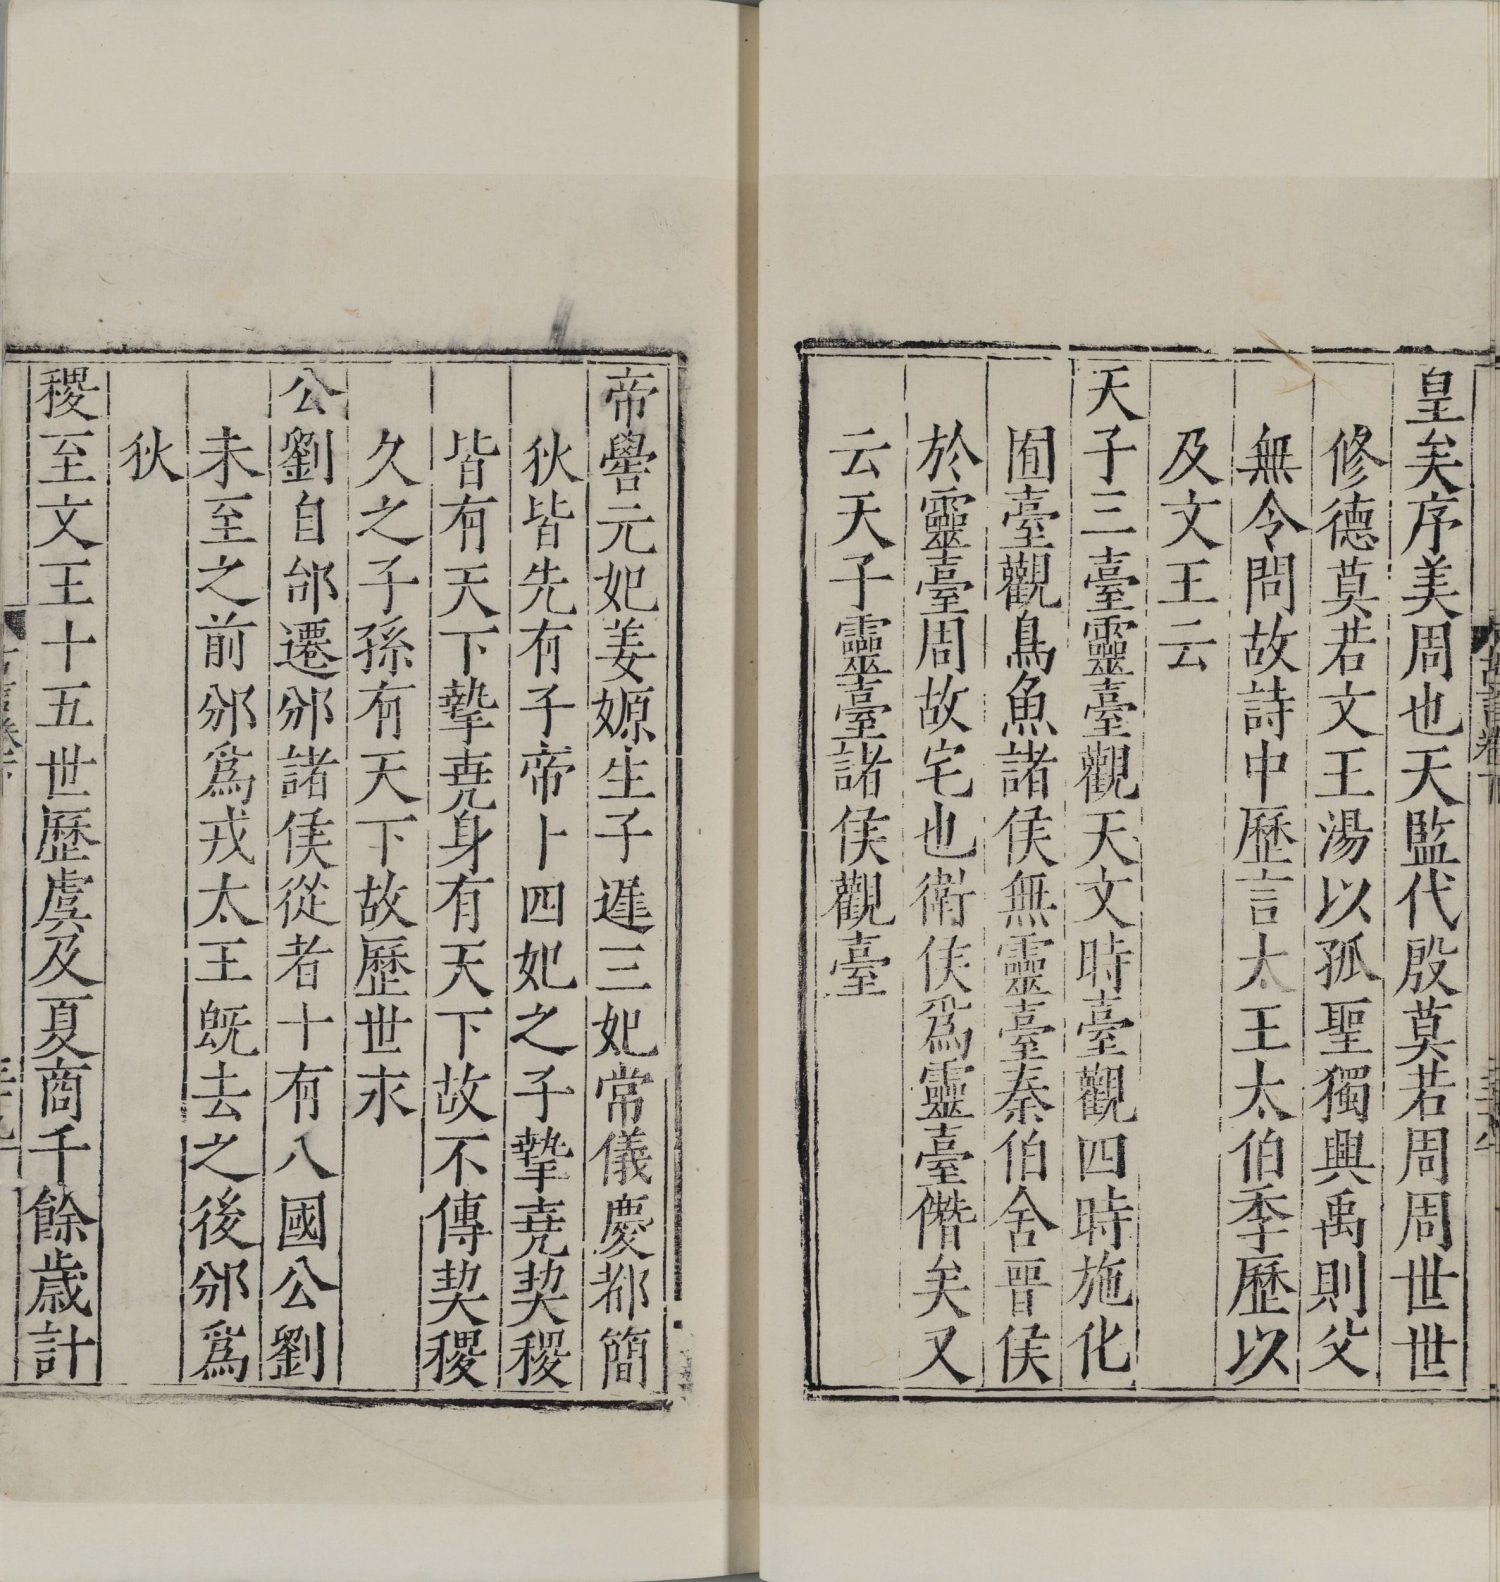 皇矣序美周也天監代殷莫若周周世世
修德莫若文王湯以孤聖獨興禹則父
無令問故詩中歷言太王太伯季歷以
及文王云
天子三臺靈臺觀天文時臺觀四時施化
囿臺觀鳥魚諸侯無靈臺秦伯舍晉侯
於靈臺周故宅也衛侯爲靈臺僭矣又
云天子靈臺諸侯觀臺
帝嚳元妃姜嫄生子遲三妃常儀慶都簡
狄皆先有子帝卜四妃之子摯堯契稷
皆有天下摯堯身有天下故不傳契稷
久之子孫有天下故歷世求
公劉自邰遷邠諸侯從者十有八國公劉
未至之前邠爲戎太王既去之後邠爲
狄
稷至文王十五世歷虞及夏商千餘歲計